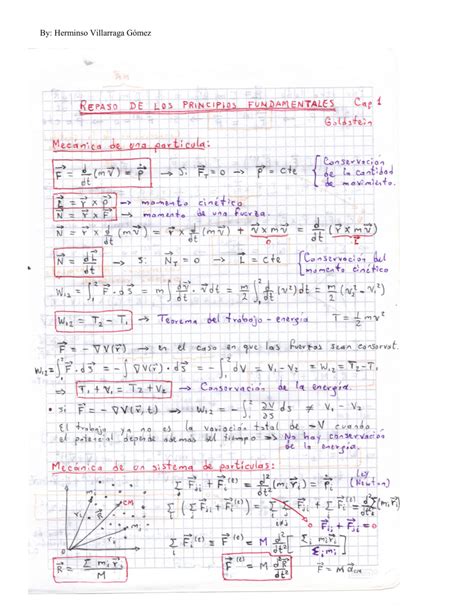 By: Herminso Villarraga Gómez
REPASO DE LOS PRINCIPIOS FUNDAMENTALES Cap 1
Goldstein
Mecánica de una partícula:
F⃗ = d/dt (m v⃗) = ṗ⃗ → Si F⃗_T = 0 → p⃗ = cte { Conservación de la cantidad de movimiento.
L⃗ = r⃗ × p⃗ → momento cinético
N⃗ = r⃗ × F⃗ → momento de una fuerza.
N⃗ = r⃗ × d/dt (m v⃗) = r⃗ × d/dt (m v⃗) + v⃗ × m v⃗ = d/dt (r⃗ × m v⃗)
0 L⃗
N⃗ = dL⃗/dt → Si N_T = 0 → L⃗ = cte { Conservación del momento cinético
W₁₂ = ∫₁² F⃗ · dS⃗ = m ∫ dv⃗/dt · v⃗ dt = m/2 ∫₁² d/dt (v²) dt = m/2 (v₂² - v₁²)
W₁₂ = T₂ - T₁ → Teorema del trabajo - energía T = ½ m v²
F⃗ = - ∇V(r⃗) → en el caso en que las fuerzas sean conservat.
W₁₂ = ∫₁² F⃗ · dS⃗ = - ∫ ∇V(r⃗) · dS⃗ = - ∫₁² dV = V₁ - V₂ = W₁₂ = T₂ - T₁
⇒ T₁ + V₁ = T₂ + V₂ → Conservación de la energía.
• Si F⃗ = - ∇V(r⃗, t) → W₁₂ = - ∫₁² ∂V/∂S dS ≠ V₁ - V₂
El trabajo ya no es la variación total de -V cuando
el potencial depende además del tiempo ⇒ No hay conservación
de la energía.
Mecánica de un sistema de partículas:
Σ F⃗ji + F⃗i⁽ᵉ⁾ = d²/dt² (mi r⃗i) (Ley Newton)
Σ (Σ F⃗ji + F⃗i⁽ᵉ⁾) = Σ F⃗ji + Σ F⃗i⁽ᵉ⁾ = d²/dt² Σ (mi r⃗i)
i≠j 0 F⃗ij + F⃗ji = 0
mi CM
ri R⃗
Σ F⃗i⁽ᵉ⁾ = F⃗⁽ᵉ⁾ = M d²/dt² [Σ mi r⃗i / Σ mi]
R⃗ = Σ mi r⃗i / M F⃗⁽ᵉ⁾ = M d²R⃗/dt² F⃗ = M a⃗